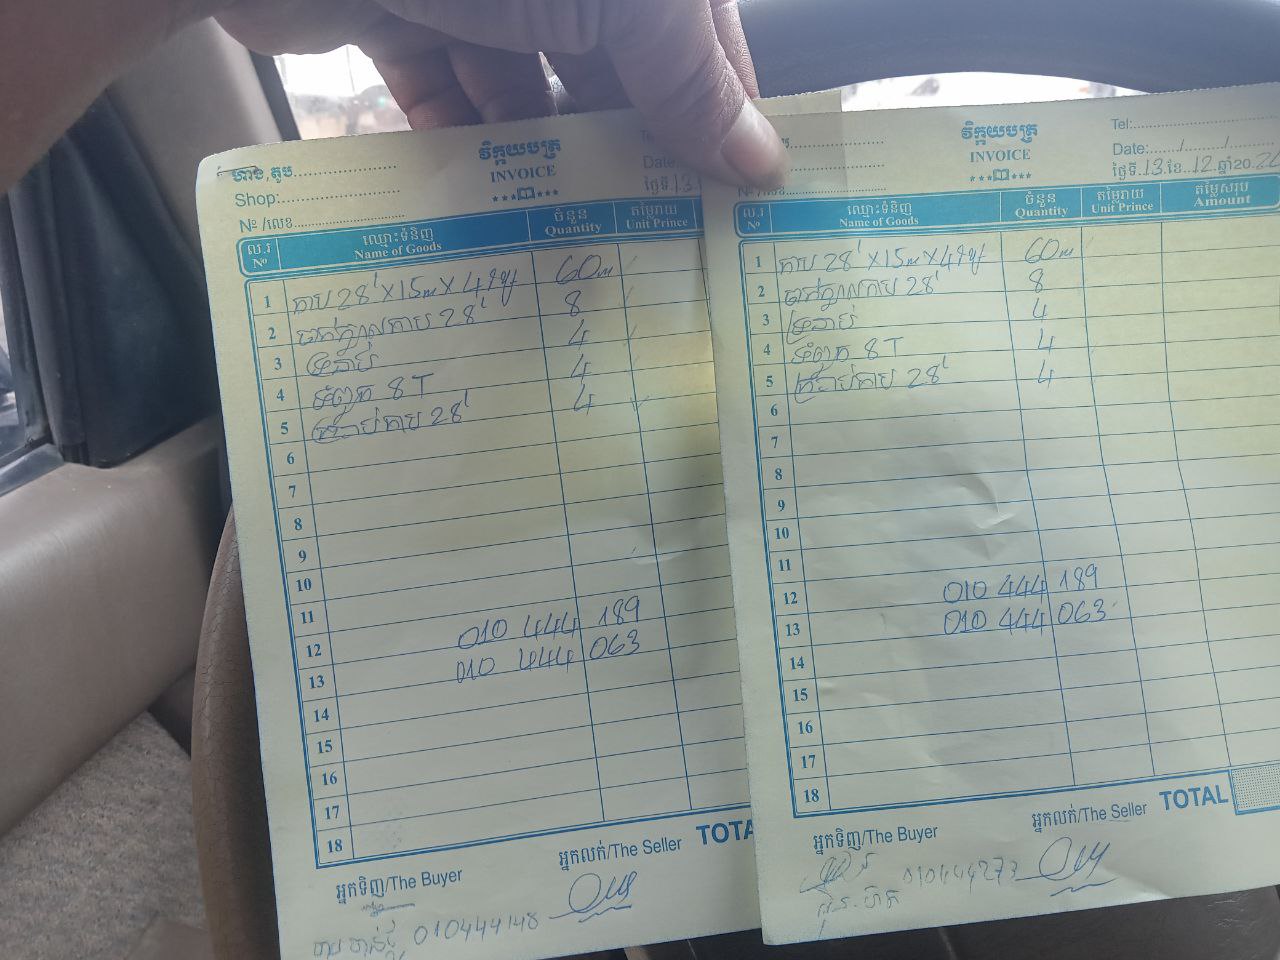 ហាង,តូប
Shop:
Nº /លេខ
វិក្កយបត្រ
INVOICE
Date:
ថ្ងៃទី.13
ល.រ Nº
ឈ្មោះទំនិញ Name of Goods
ចំនួន Quantity
តម្លៃរាយ Unit Prince
1 កាប 28' X 15m X 4 60m
2 កាប 28' 8
3 ទ្រនាប់ 4
4 ទំពួក 8T 4
5 កាប 28' 4
6
7
8
9
10
11
12 010 444 189
13 010 444 063
14
15
16
17
18
អ្នកទិញ/The Buyer
អ្នកលក់/The Seller
010444148
វិក្កយបត្រ
INVOICE
Tel:
Date:
ថ្ងៃទី.13.ខែ.12.ឆ្នាំ20
ល.រ Nº
ឈ្មោះទំនិញ Name of Goods
ចំនួន Quantity
តម្លៃរាយ Unit Prince
តម្លៃសរុប Amount
1 កាប 28' X 15m X 4 60m
2 កាប 28' 8
3 ទ្រនាប់ 4
4 ទំពួក 8T 4
5 កាប 28' 4
6
7
8
9
10
11
12 010 444 189
13 010 444 063
14
15
16
17
18
TOTAL
អ្នកទិញ/The Buyer
អ្នកលក់/The Seller
010444273